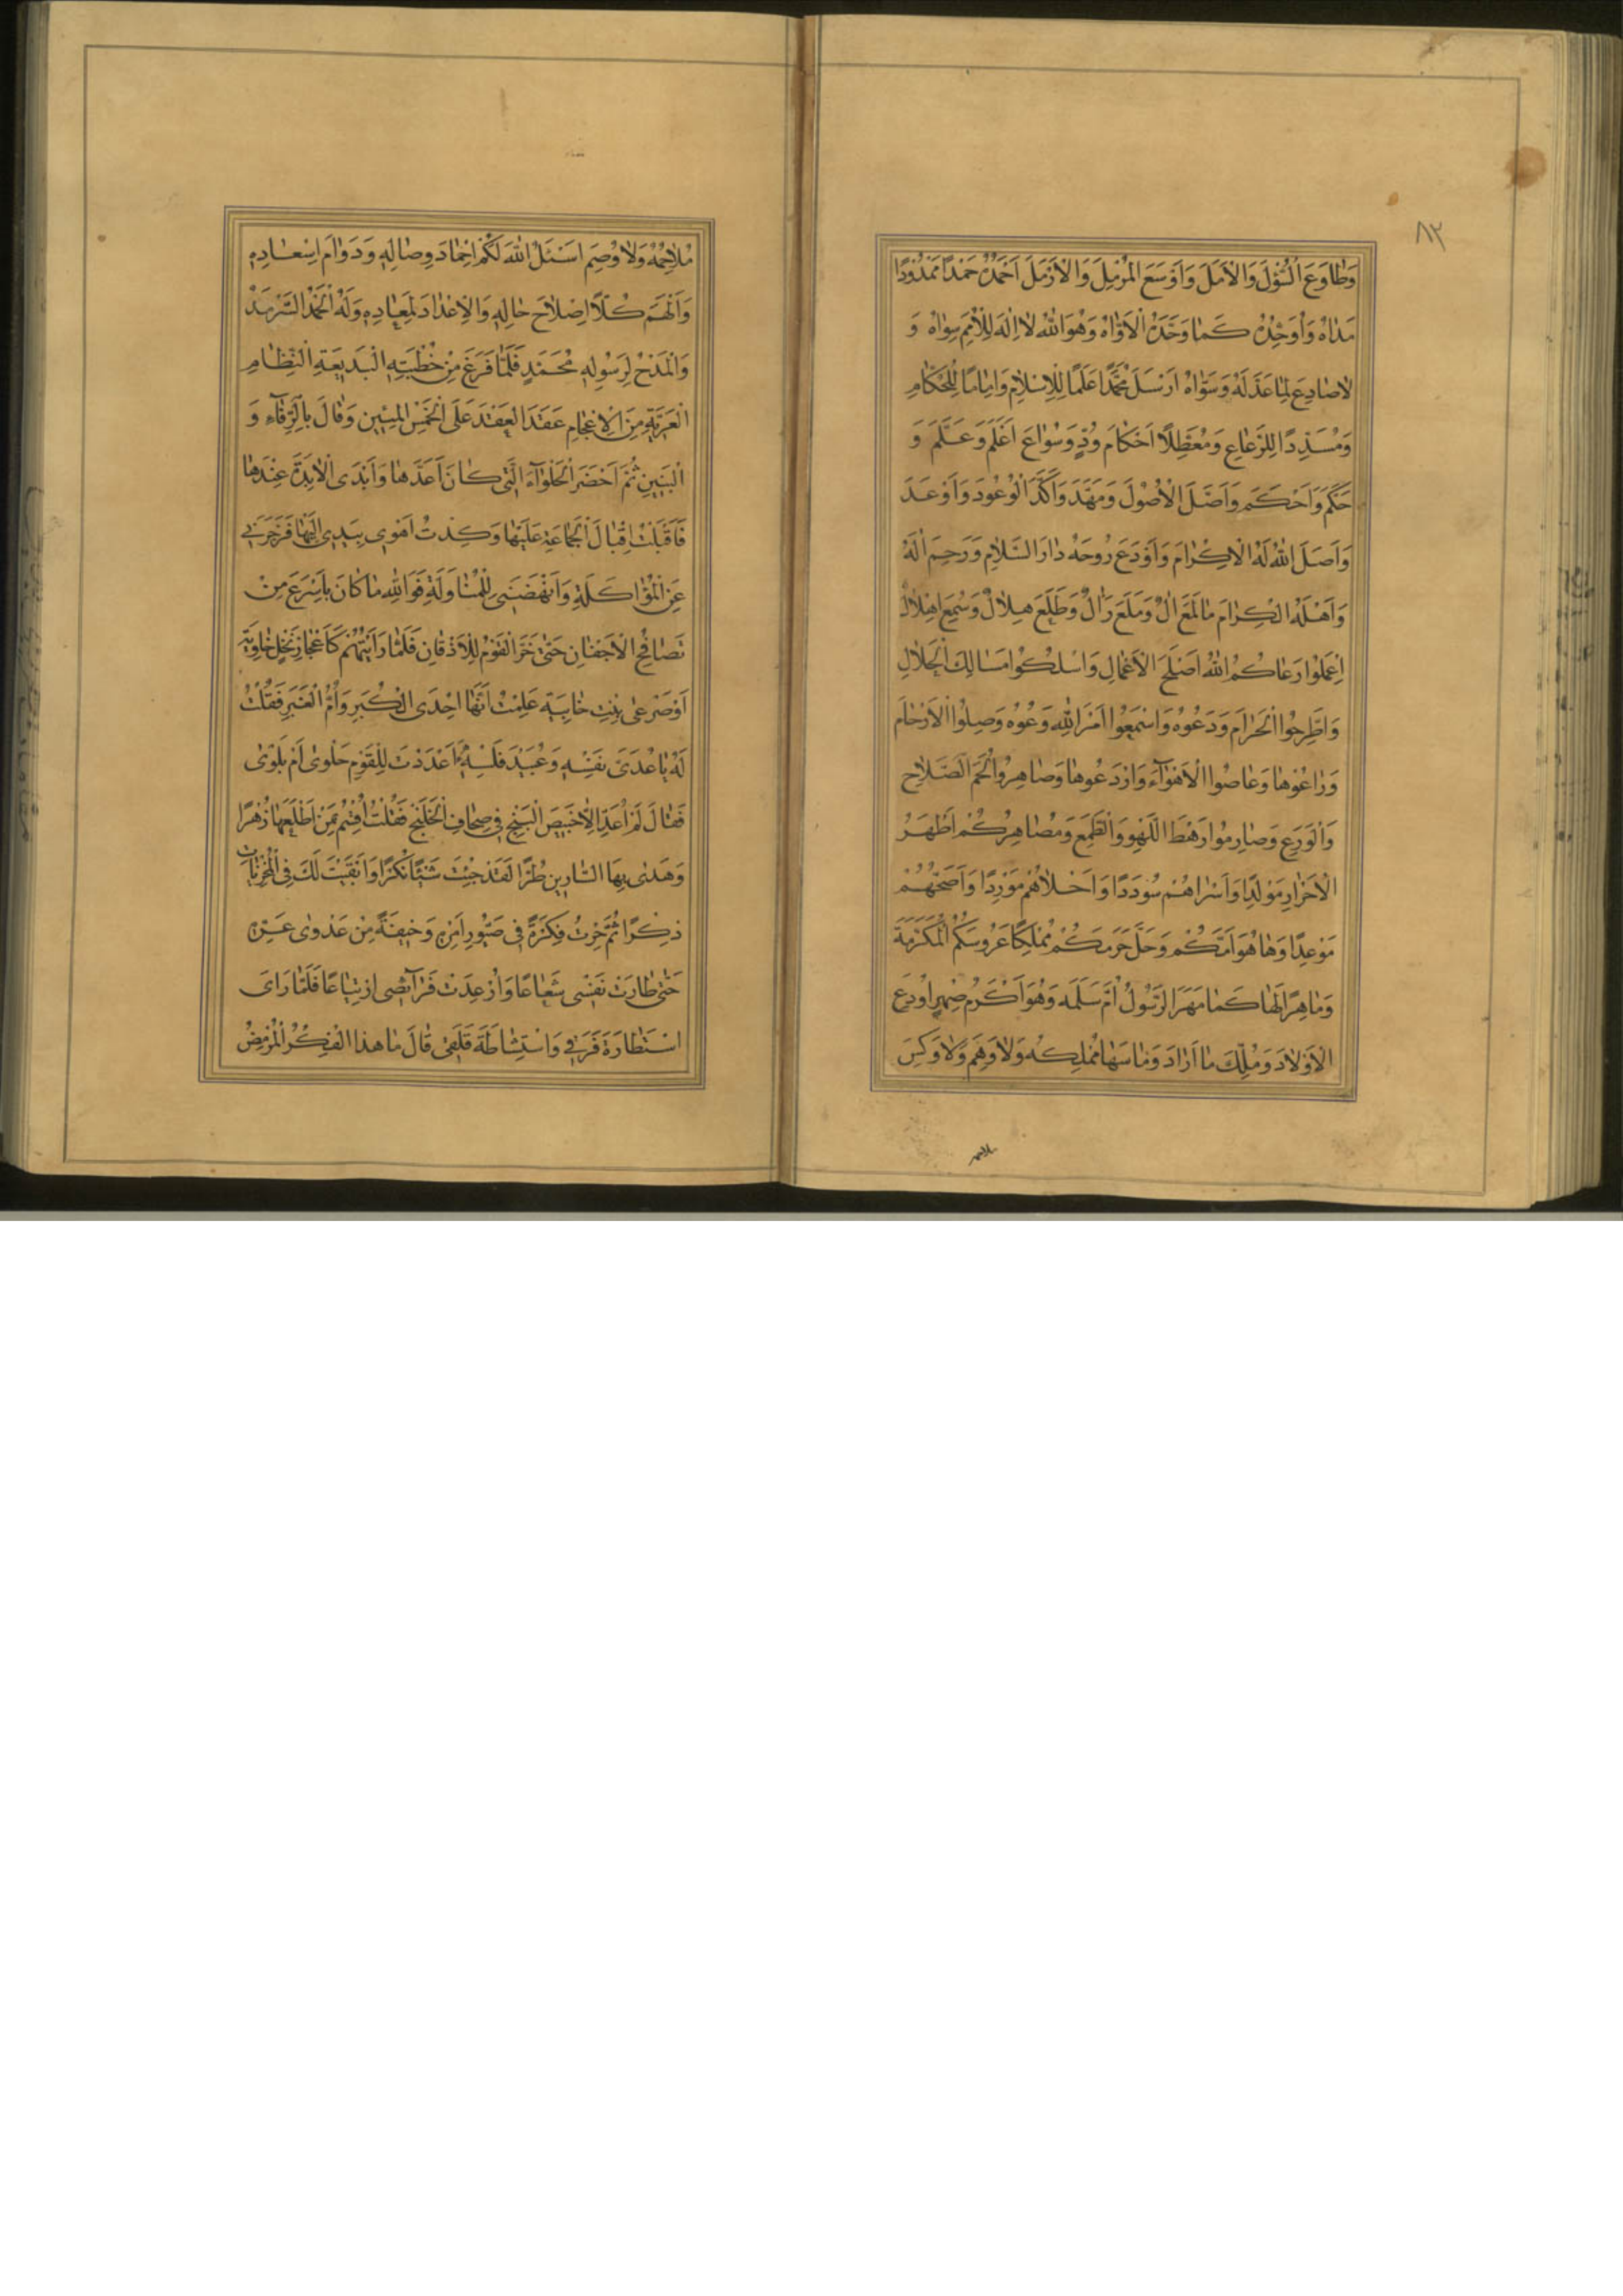 ٨٣
وَطَاوَعَ السُّؤْلَ وَالْاَمَلَ وَاَوْسَعَ الْمُرْمِلَ وَالْاَرْمَلَ اَحْمَدُهُ حَمْدًا مَمْدُودًا
مَدَاهُ وَاُوَحِّدُهُ كَمَا وَحَّدَهُ الْاَوَّاهُ وَهُوَ اللهُ لَا اِلٰهَ لِلْاُمَمِ سِوَاهُ وَ
لَا صَادِعَ لِمَا عَدَّلَهُ وَسَوَّاهُ اَرْسَلَ مُحَمَّدًا عَلَمًا لِلْاِسْلَامِ وَاِمَامًا لِلْحُكَّامِ
وَمُسَدِّدًا لِلرَّعَاعِ وَمُعَطِّلًا اَحْكَامَ وُدٍّ وَسُوَاعَ اَعْلَمَ وَعَلَّمَ وَ
حَكَمَ وَاَحْكَمَ وَاَصَّلَ الْاُصُولَ وَمَهَّدَ وَاَكَّدَ الْوُعُودَ وَاَوْعَدَ
وَاَصَلَ اللهُ لَهُ الْاِكْرَامَ وَاَوْدَعَ رُوحَهُ دَارَ السَّلَامِ وَرَحِمَ اٰلَهُ
وَاَهْلَهُ الْكِرَامَ مَا لَمَعَ اٰلٌ وَمَلَعَ رَالٌ وَطَلَعَ هِلَالٌ وَسُمِعَ اِهْلَالٌ
اِعْمَلُوا رَعَاكُمُ اللهُ اَصْلَحَ الْاَعْمَالِ وَاسْلُكُوا مَسَالِكَ الْحَلَالِ
وَاطَّرِحُوا الْحَرَامَ وَدَعُوهُ وَاسْمَعُوا اَمْرَ اللهِ وَعُوهُ وَصِلُوا الْاَرْحَامَ
وَرَاعُوهَا وَعَاصُوا الْاَهْوَاءَ وَارْدَعُوهَا وَصَاهِرُوا لُحَمَ الصَّلَاحِ
وَالْوَرَعِ وَصَارِمُوا رَهْطَ اللَّهْوِ وَالطَّمَعِ وَمُصَاهِرُكُمْ اَطْهَرُ
الْاَحْرَارِ مَوْلِدًا وَاَسْرَاهُمْ سُودَدًا وَاَحْلَاهُمْ مَوْرِدًا وَاَصَحُّهُمْ
مَوْعِدًا وَهَا هُوَ اَمَّكُمْ وَحَلَّ حَرَمَكُمْ مُمْلِكًا عَرُوسَكُمُ الْمُكَرَّمَةَ
وَمَاهِرًا لَهَا كَمَا مَهَرَ الرَّسُولُ اُمَّ سَلَمَه وَهُوَ اَكْرَمُ صِهْرٍ اُودِعَ
الْاَوْلَادَ وَمُلِّكَ مَا اَرَادَ وَمَا سَهَا مُمْلِكُه وَلَا وَهِمَ وَلَا وَكِسَ
ملاحمه
مُلَاحِمُهُ وَلَا وُصِمَ اَسْئَلُ اللهَ لَكُمْ اِحْمَادَ وِصَالِهِ وَدَوَامَ اِسْعَادِهِ
وَاَلْهَمَ كُلًّا اِصْلَاحَ حَالِهِ وَالْاِعْدَادَ لِمَعَادِهِ وَلَهُ الْحَمْدُ السَّرْمَدُ
وَالْمَدْحُ لِرَسُولِهِ مُحَمَّدٍ فَلَمَّا فَرَغَ مِنْ خُطْبَتِهِ الْبَدِيعَةِ النِّظَامِ
الْعَرِيَّةِ مِنَ الْاِعْجَامِ عَقَدَ الْعَقْدَ عَلَى الْخَمْسِ الْمِئِينَ وَقَالَ بِالرِّفَاءِ وَ
الْبَنِينَ ثُمَّ اَحْضَرَ الْحَلْوَاءَ الَّتِي كَانَ اَعَدَّهَا وَاَبْدَى الْاٰبِدَةَ عِنْدَهَا
فَاَقْبَلْتُ اِقْبَالَ الْجَمَاعَةِ عَلَيْهَا وَكِدْتُ اَهْوِى بِيَدِى اِلَيْهَا فَزَجَرَنِى
عَنِ الْمُؤَاكَلَةِ وَاَنْهَضَنِى لِلْمُنَاوَلَةِ فَوَاللهِ مَا كَانَ بِاَسْرَعَ مِنْ
تَصَافُحِ الْاَجْفَانِ حَتّٰى خَرَّ الْقَوْمُ لِلْاَذْقَانِ فَلَمَّا رَاَيْتُهُمْ كَاَعْجَازِ نَخْلٍ خَاوِيَةٍ
اَوْ صَرْعٰى بِنْتِ خَابِيَةٍ عَلِمْتُ اَنَّهَا اِحْدَى الْكُبَرِ وَاُمُّ الْعَبَرِ فَقُلْتُ
لَهُ يَا عُدَىَّ نَفْسِهِ وَعُبَيْدَ فَلْسِهِ اَعْدَدْتَ لِلْقَوْمِ حَلْوٰى اَمْ بَلْوٰى
فَقَالَ لَمْ اَعْدُ اِلَّا خَبِيصَ الْبَنْجِ فِى صِحَافِ الْخَلَنْجِ فَقُلْتُ اُقْسِمُ بِمَنْ اَطْلَعَهَا زُهْرًا
وَهَدٰى بِهَا السَّارِينَ طُرًّا لَقَدْ جِئْتَ شَيْئًا نُكْرًا وَاَبْقَيْتَ لَكَ فِى الْمُخْزِيَاتِ
ذِكْرًا ثُمَّ حِرْتُ فِكْرَةً فِى صَيُّورِ اَمْرِهِ وَخِيفَةً مِنْ عَدْوٰى عَرِّهِ
حَتّٰى طَارَتْ نَفْسِى شَعَاعًا وَاُرْعِدَتْ فَرَائِصِى ارْتِيَاعًا فَلَمَّا رَاَى
اسْتِطَارَةَ فَرَقِى وَاسْتِشَاطَةَ قَلَقِى قَالَ مَا هٰذَا الْفِكْرُ الْمُرْمِضُ